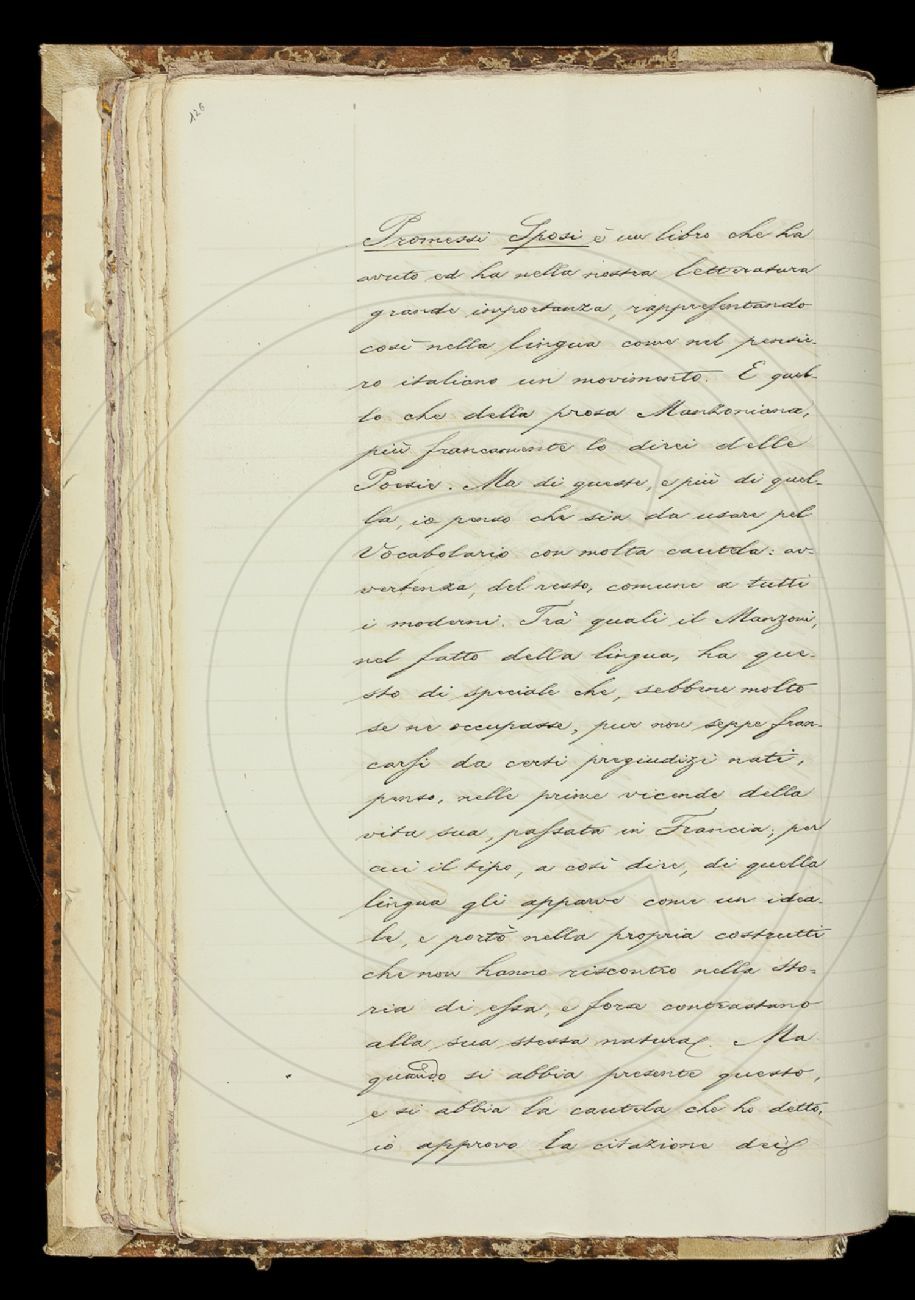 126
Promessi Sposi è un libro che ha
avuto ed ha nella nostra letteratura
grande importanza, rappresentando
così nella lingua come nel pensie-
ro italiano un movimento. E quel-
lo che della prosa Manzoniana,
più francamente lo direi delle
Poesie. Ma di queste, e più di quel-
la, io penso che sia da usare pel
Vocabolario con molta cautela: av-
vertenza, del resto, comune a tutti
i moderni. Tra' quali il Manzoni,
nel fatto della lingua, ha que-
sto di speciale che, sebbene molto
se ne occupasse, pur non seppe fran-
carsi da certi pregiudizi nati,
penso, nelle prime vicende della
vita sua, passata in Francia; per
cui il tipo, a così dire, di quella
lingua gli apparve come un idea-
le, e portò nella propria costrutti
che non hanno riscontro nella sto-
ria di essa, e forse contrastano
alla sua stessa natura. Ma
quando si abbia presente questo,
e si abbia la cautela che ho detto,
io approvo la citazione dei